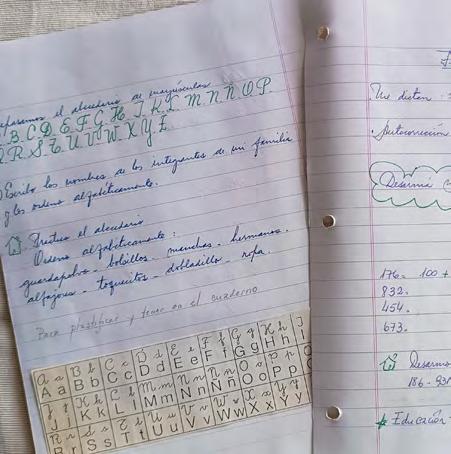 Repasamos el abecedario de mayúsculas
B C D E F G H I J K L M N Ñ O P
Q R S T U V W X Y Z
Escribo los nombres de los integrantes de mi familia
y los ordeno alfabéticamente.
Practico el abecedario
Ordeno alfabéticamente:
guardapolvo - bolsillos - manchas - hermanos -
alfajores - toquecitos - dobladillo - ropa.
Para plastificar y tener en el cuaderno
A a B b C c D d E e F f G g H h I
A a B b C c D d E e F f G g H h I
J j K k L l M m N n Ñ ñ O o P p
J j K k L l M m N n Ñ ñ O o P p
R r S s T t U u V v W w X x Y y
R r S s T t U u V v W w X x Y y
Me dictan:
Autocorrección
Desarmá
176= 100 +
832=
454=
673=
Desarmo
186 - 931
Educación